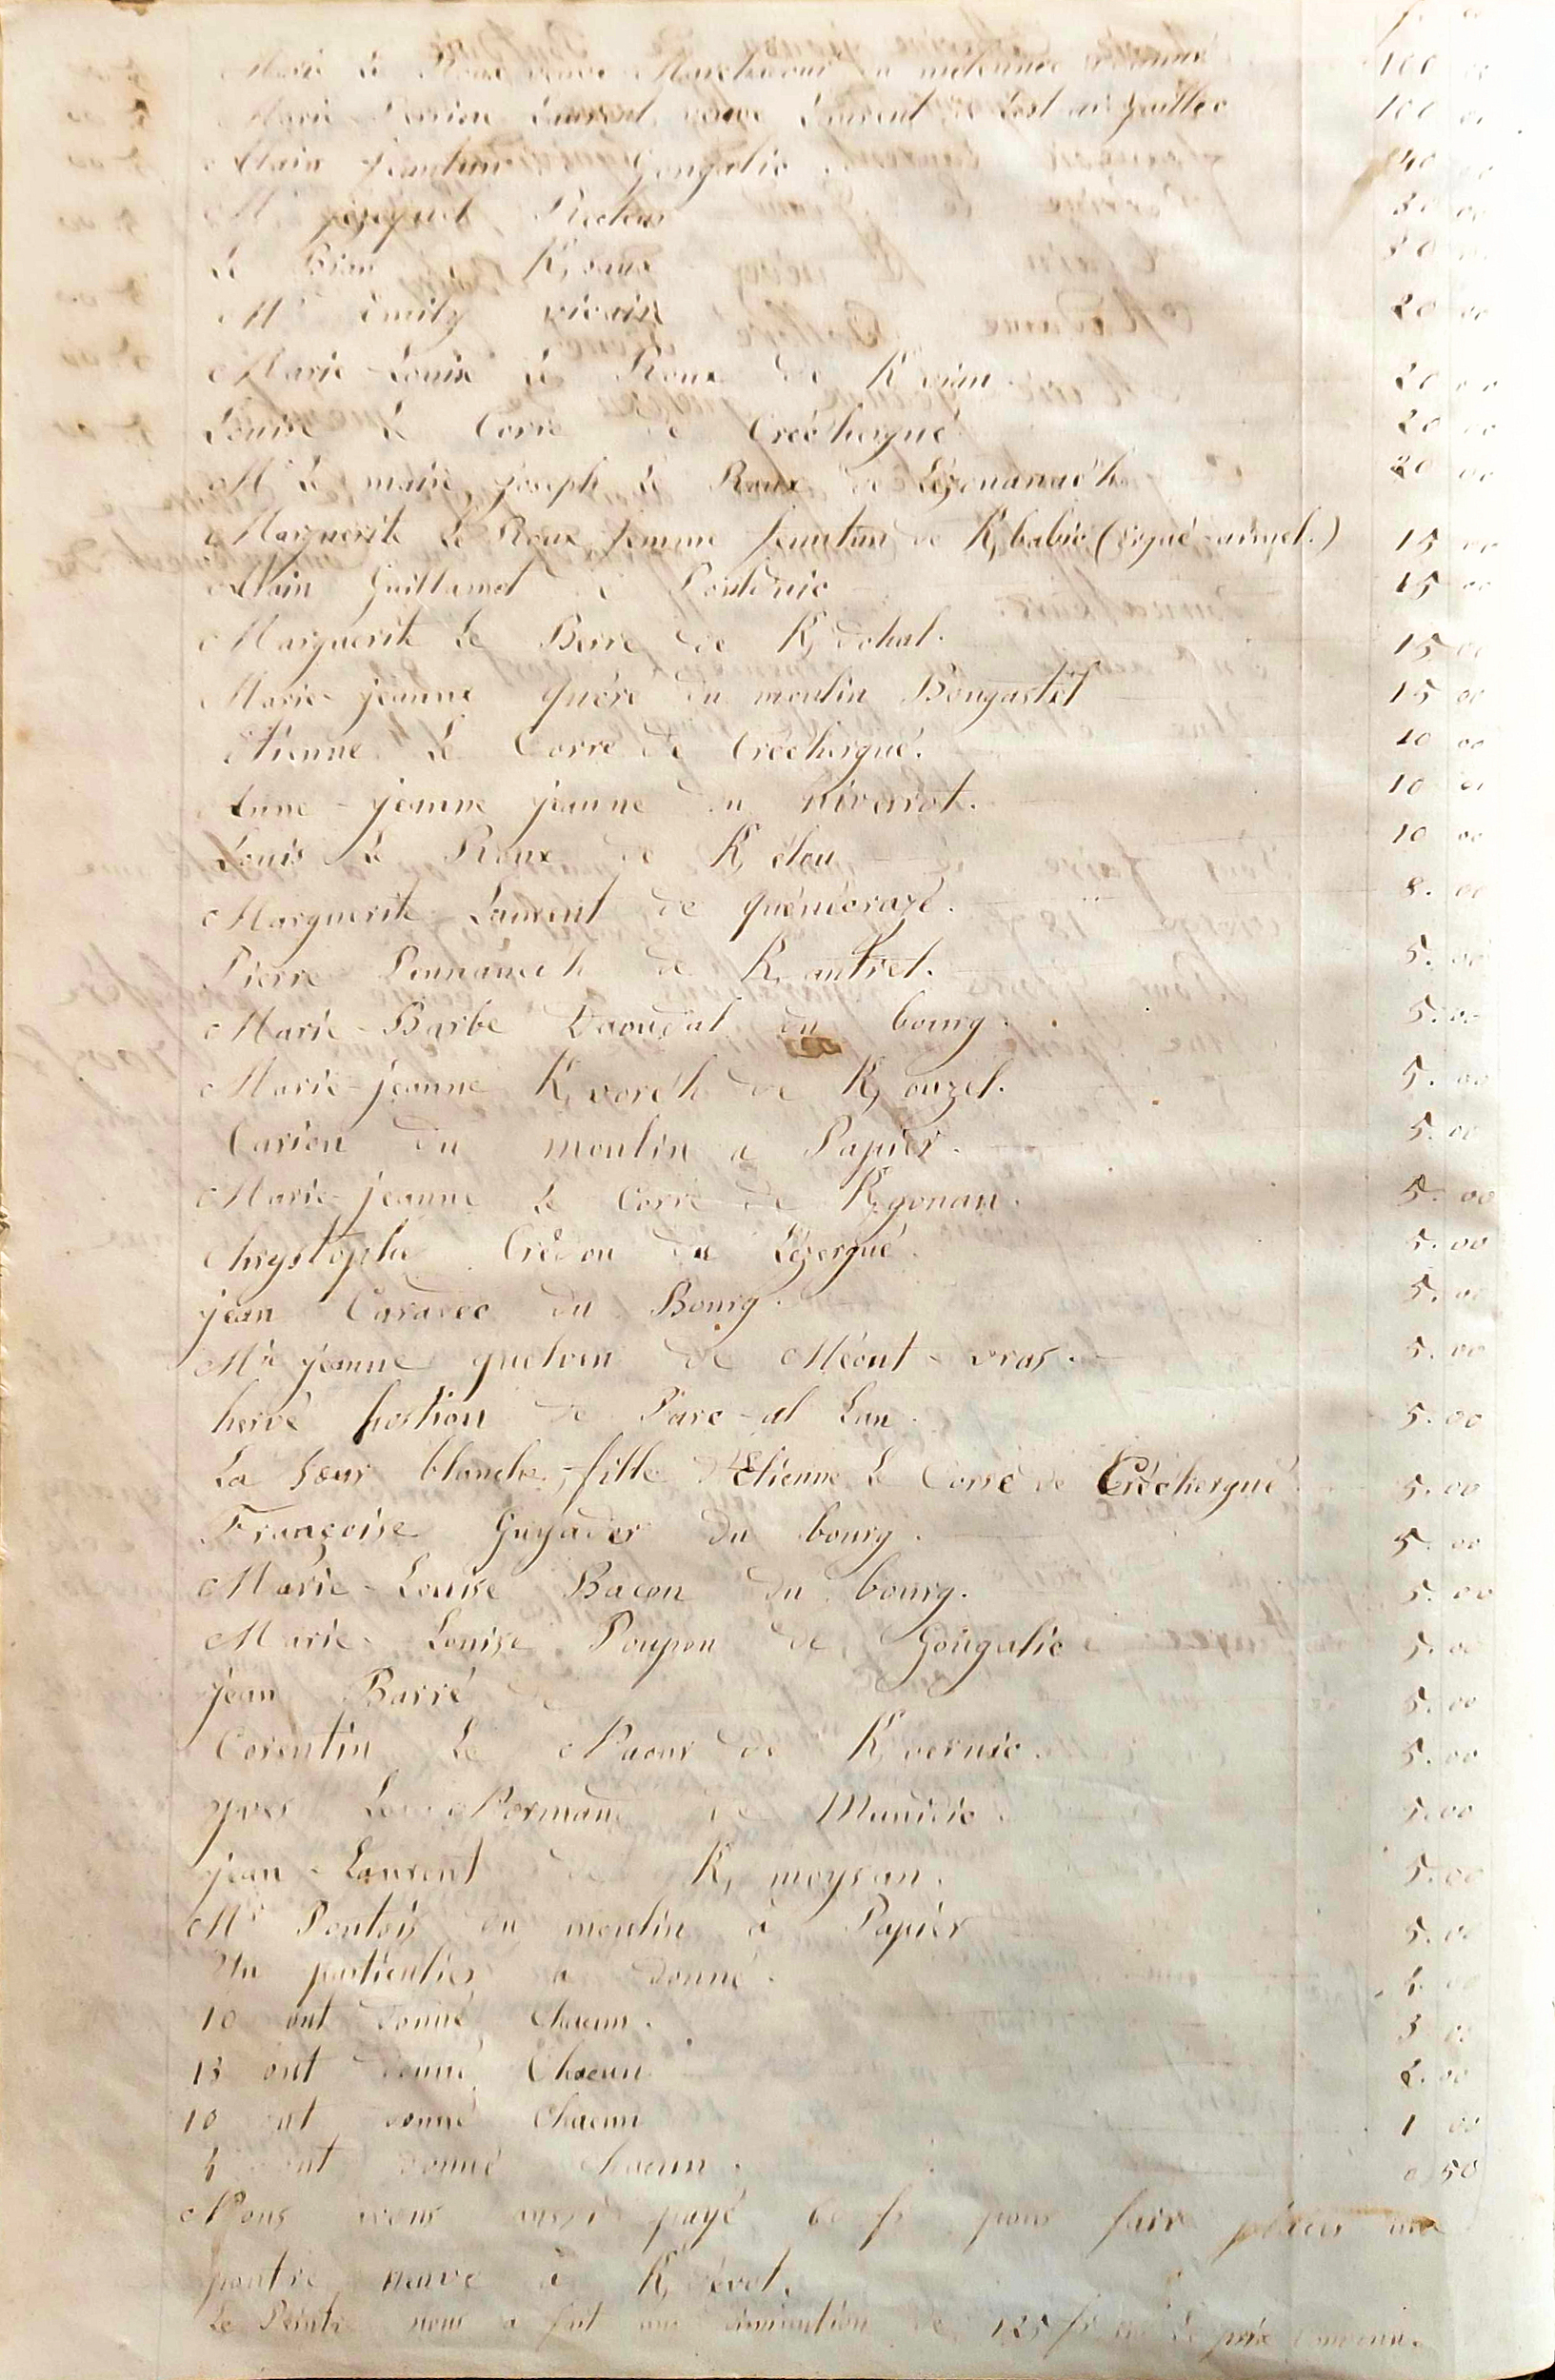 f. c
Marie Le Roux veuve 100 00
Marie Perrine Laurent, veuve Laurent, de Lost ar guillec 100 00
Alain feunteun Gongalic 40 00
Mr Recteur 30 00
Le Bian K, 20 00
Mr Emily vicaire 20 00
Marie-Louise Le Roux de K vian 20 00
Louise Le Corre de Crec'hergué 20 00
Mr Le maire joseph Le Roux de Lézouanac'h 20 00
Marguerite Le Roux, femme feunteun de K, babic (ergué-armel.) 15 00
Alain Guillamet de Pouldric 15 00
Marguerite Le Berre de K, dohal. 15 00
Marie-jeanne quéré du moulin Bongastel 15 00
Etienne Le Corre de Créchergué. 10 00
Anne-jeanne jeanne du niverrot. 10 00
Louis Le Roux de K, élou 10 00
Marguerite Laurent de quénécrazé. 8. 00
Pierre Pennanéach de K, autret. 5. 00
Marie-Barbe Daoudal du bourg. 5. 00
Marie-jeanne K, vorc'h de K, ouzel. 5. 00
Carion du moulin a Papier. 5. 00
Marie-jeanne Le Corre de K, gonan. 5. 00
Chrystophe Crédou de Lézergué. 5. 00
jean Caradec du Bourg. 5. 00
Mie jeanne quelven de Méout-vras. 5. 00
hervé hostiou de Parc-al Lan. 5. 00
La Sœur blanche, fille d'Etienne Le Corre de Créchergué 5. 00
Françoise Guyader du bourg. 5 00
Marie-Louise Bacon du bourg. 5. 00
Marie-Louise Poupon de Gougalic 5. 00
jean Barré de 5. 00
Corentin Le Naour de K, vernic. 5. 00
yves Le Normand de Munidic 5. 00
jean-Laurent de K, moysan. 5. 00
Mr Pontois du moulin à Papier 5. 00
Un particulier a donné. 4. 00
10 ont donné Chacun. 3 00
13 ont donné Chacun 2. 00
10 ont donné Chacun 1 00
4 ont donné Chacun. 0 50
Nous avons aussi payé 60 fr pour faire placer une
poutre neuve à K, dévot.
Le Peintre nous a fait une diminution de 125 fr sur le prix convenu.